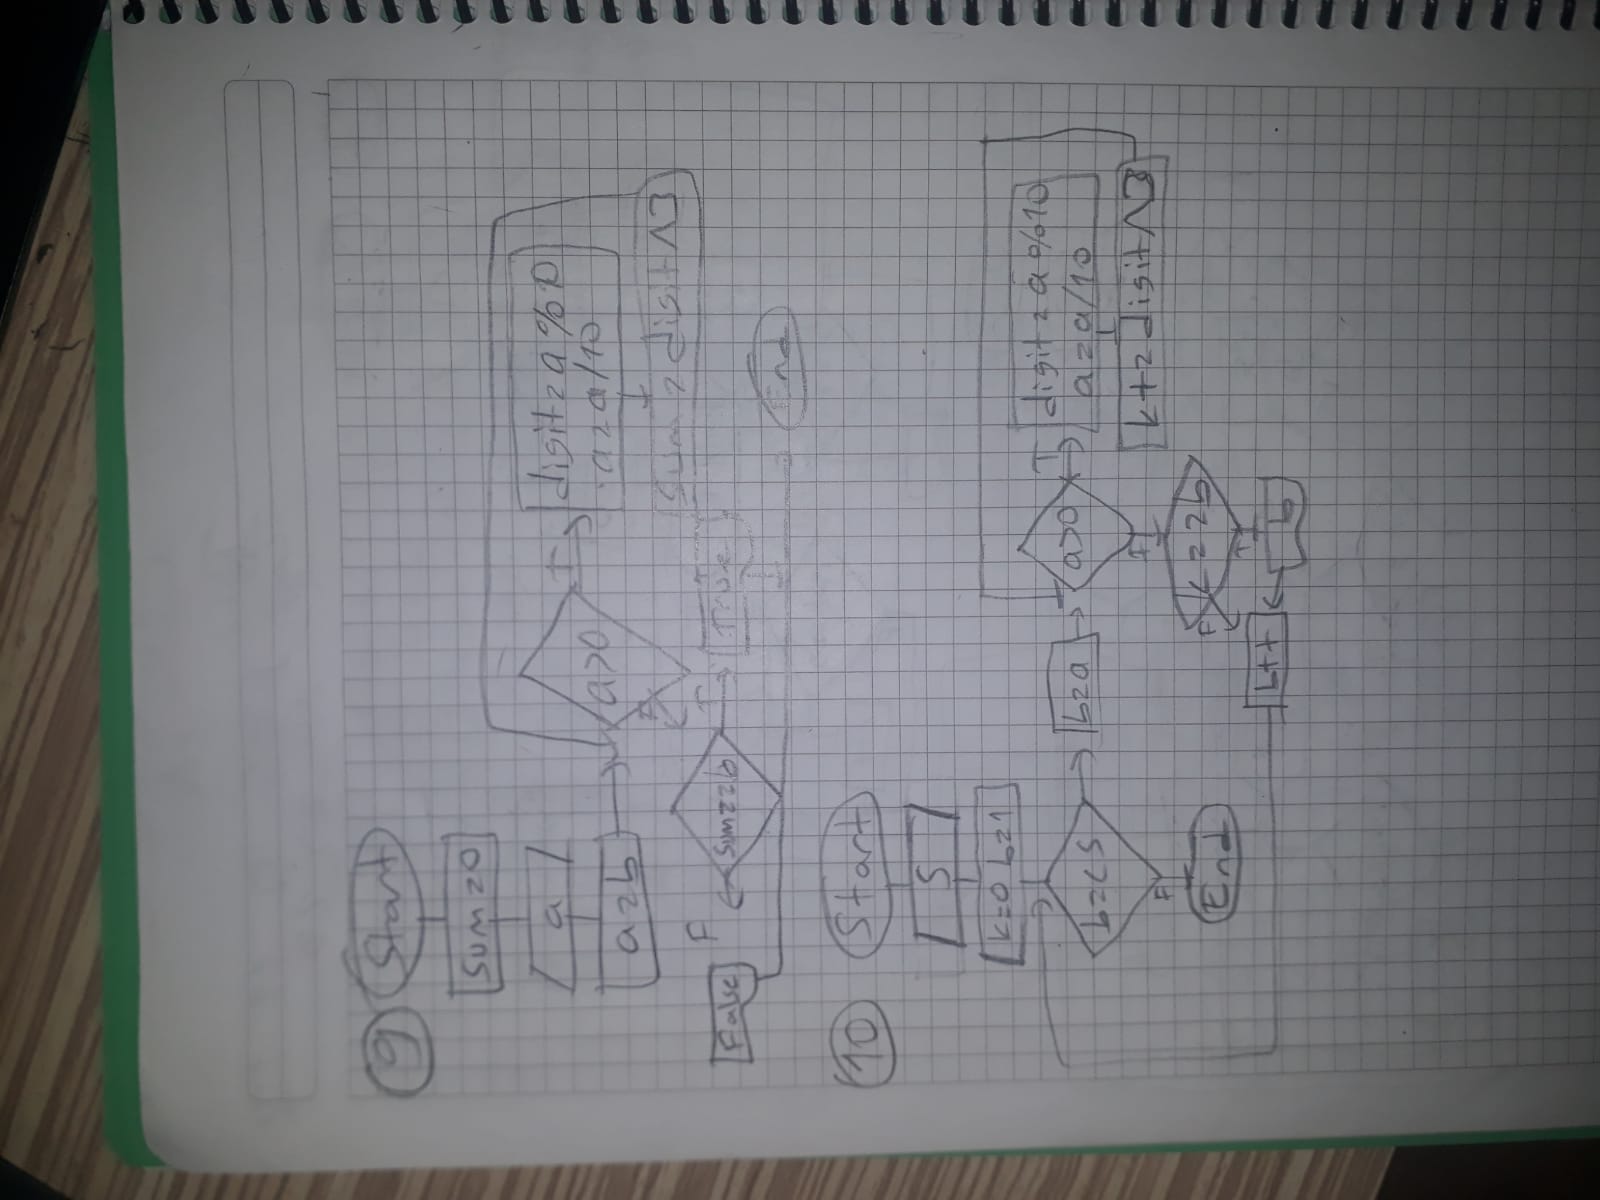 9 Start
sum=0
a
a=b
a>0
T
digit=a%10
a=a/10
F
sum=digit^3
sum==b
F
False
T
True
End
10 Start
S
k=0 b=1
b=<S
b=a
a>0
T
digit=a%10
a=a/10
k+=digit^3
F
F
End
k==b
F
T
b
b++